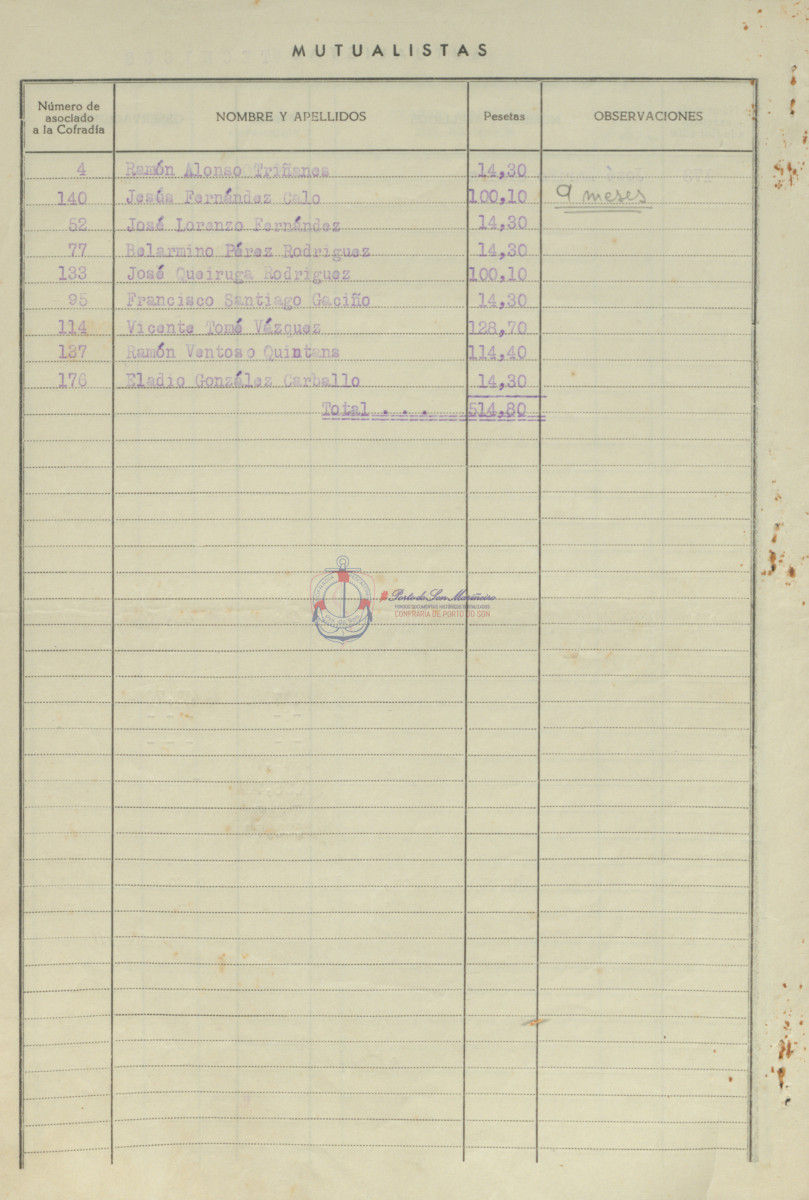 MUTUALISTAS
Número de asociado a la Cofradía NOMBRE Y APELLIDOS Pesetas OBSERVACIONES
4 Ramón Alonso Triñanes 14,30
140 Jesús Fernández Calo 100,10 9 meses
52 José Lorenzo Fernández 14,30
77 Belarmino Pérez Rodriguez 14,30
133 José Queiruga Rodriguez 100,10
95 Francisco Santiago Gaciño 14,30
114 Vicente Tomé Vázquez 128,70
137 Ramón Ventoso Quintans 114,40
176 Eladio González Carballo 14,30
Total . . . 514,80
Porto do Son Mariñeiro
CONFRARÍA DE PORTO DO SON